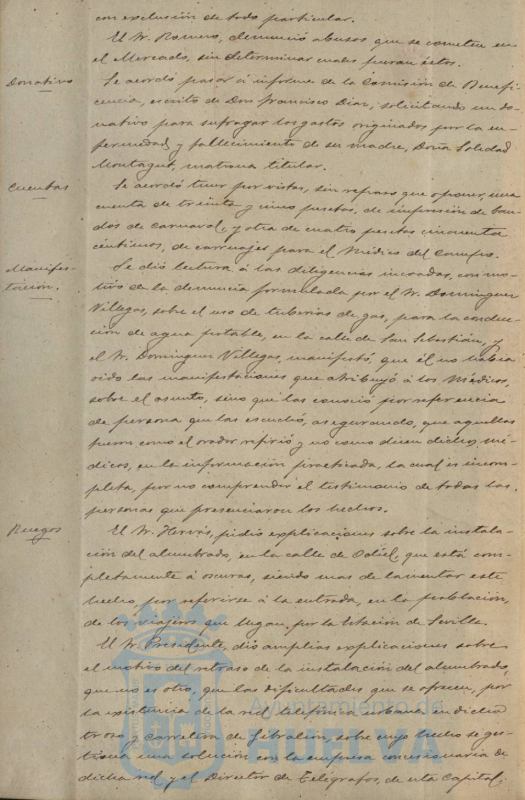 con exclusión de todo particular.
El Sr. Romero, denunció abusos que se cometen en
el Mercado, sin determinar cuales fueran éstos.
Donativo
Se acordó pasar á informe de la Comisión de Benefi-
cencia, escrito de Don Francisco Diaz, solicitando un do-
nativo para sufragar los gastos originados por la en-
fermedad y fallecimiento de su madre, Doña Soledad
Montagut, matrona titular.
Cuentas
Se acordó tener por vistas, sin reparo que oponer, una
cuenta de treinta y cinco pesetas, de impresión de ban-
dos de carnaval, y otra de cuatro pesetas cincuenta
céntimos, de carruajes para el Médico del Campo.
Manifes-
tación.
Se dió lectura á las diligencias incoadas, con mo-
tivo de la denuncia formulada por el Sr. Dominguez
Villegas, sobre el uso de tuberias de gas, para la conduc-
ción de agua potable, en la calle de San Sebastián, y
el Sr. Dominguez Villegas, manifestó, que él no habia
oido las manifestaciones que atribuyó á los Médicos,
sobre el asunto, sino que las conoció por referencia
de persona que las escuchó, asegurando, que aquellas
fueron como el orador refirió y no como dicen dichos mé-
dicos, en la información practicada, la cual es incom-
pleta, por no comprender el testimonio de todas las
personas que presenciaron los hechos.
Ruegos
El Sr. Hervás, pidió explicaciones sobre la instala-
ción del alumbrado, en la calle de Odiel, que está com-
pletamente á oscuras, siendo mas de lamentar este
hecho, por referirse á la entrada, en la población,
de los viajeros que llegan por la Estación de Sevilla.
El Sr. Presidente, dió amplias explicaciones sobre
el motivo del retraso de la instalación del alumbrado,
que no es otro, que las dificultades que se ofrecen, por
la existencia de la red telefónica urbana, en dicho
trozo y carretera de Gibraleón, sobre cuyo hecho se ges-
tiona una solución con la empresa concesionaria de
dicha red y el Director de Telégrafos, de esta Capital;
Ayuntamiento de
HUELVA